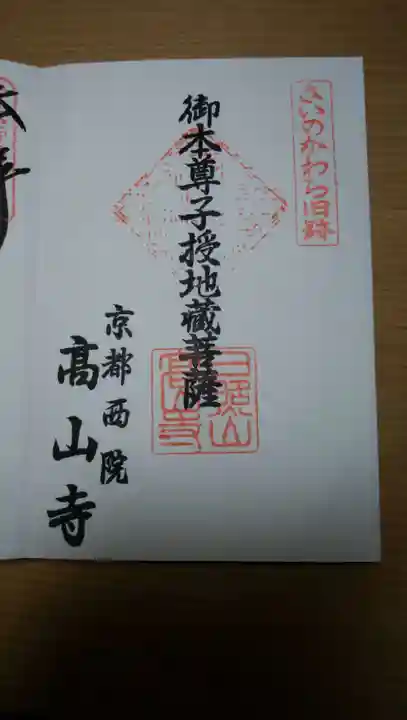 さいのかわら旧跡
御本尊子授地蔵菩薩
京都西院
高山寺